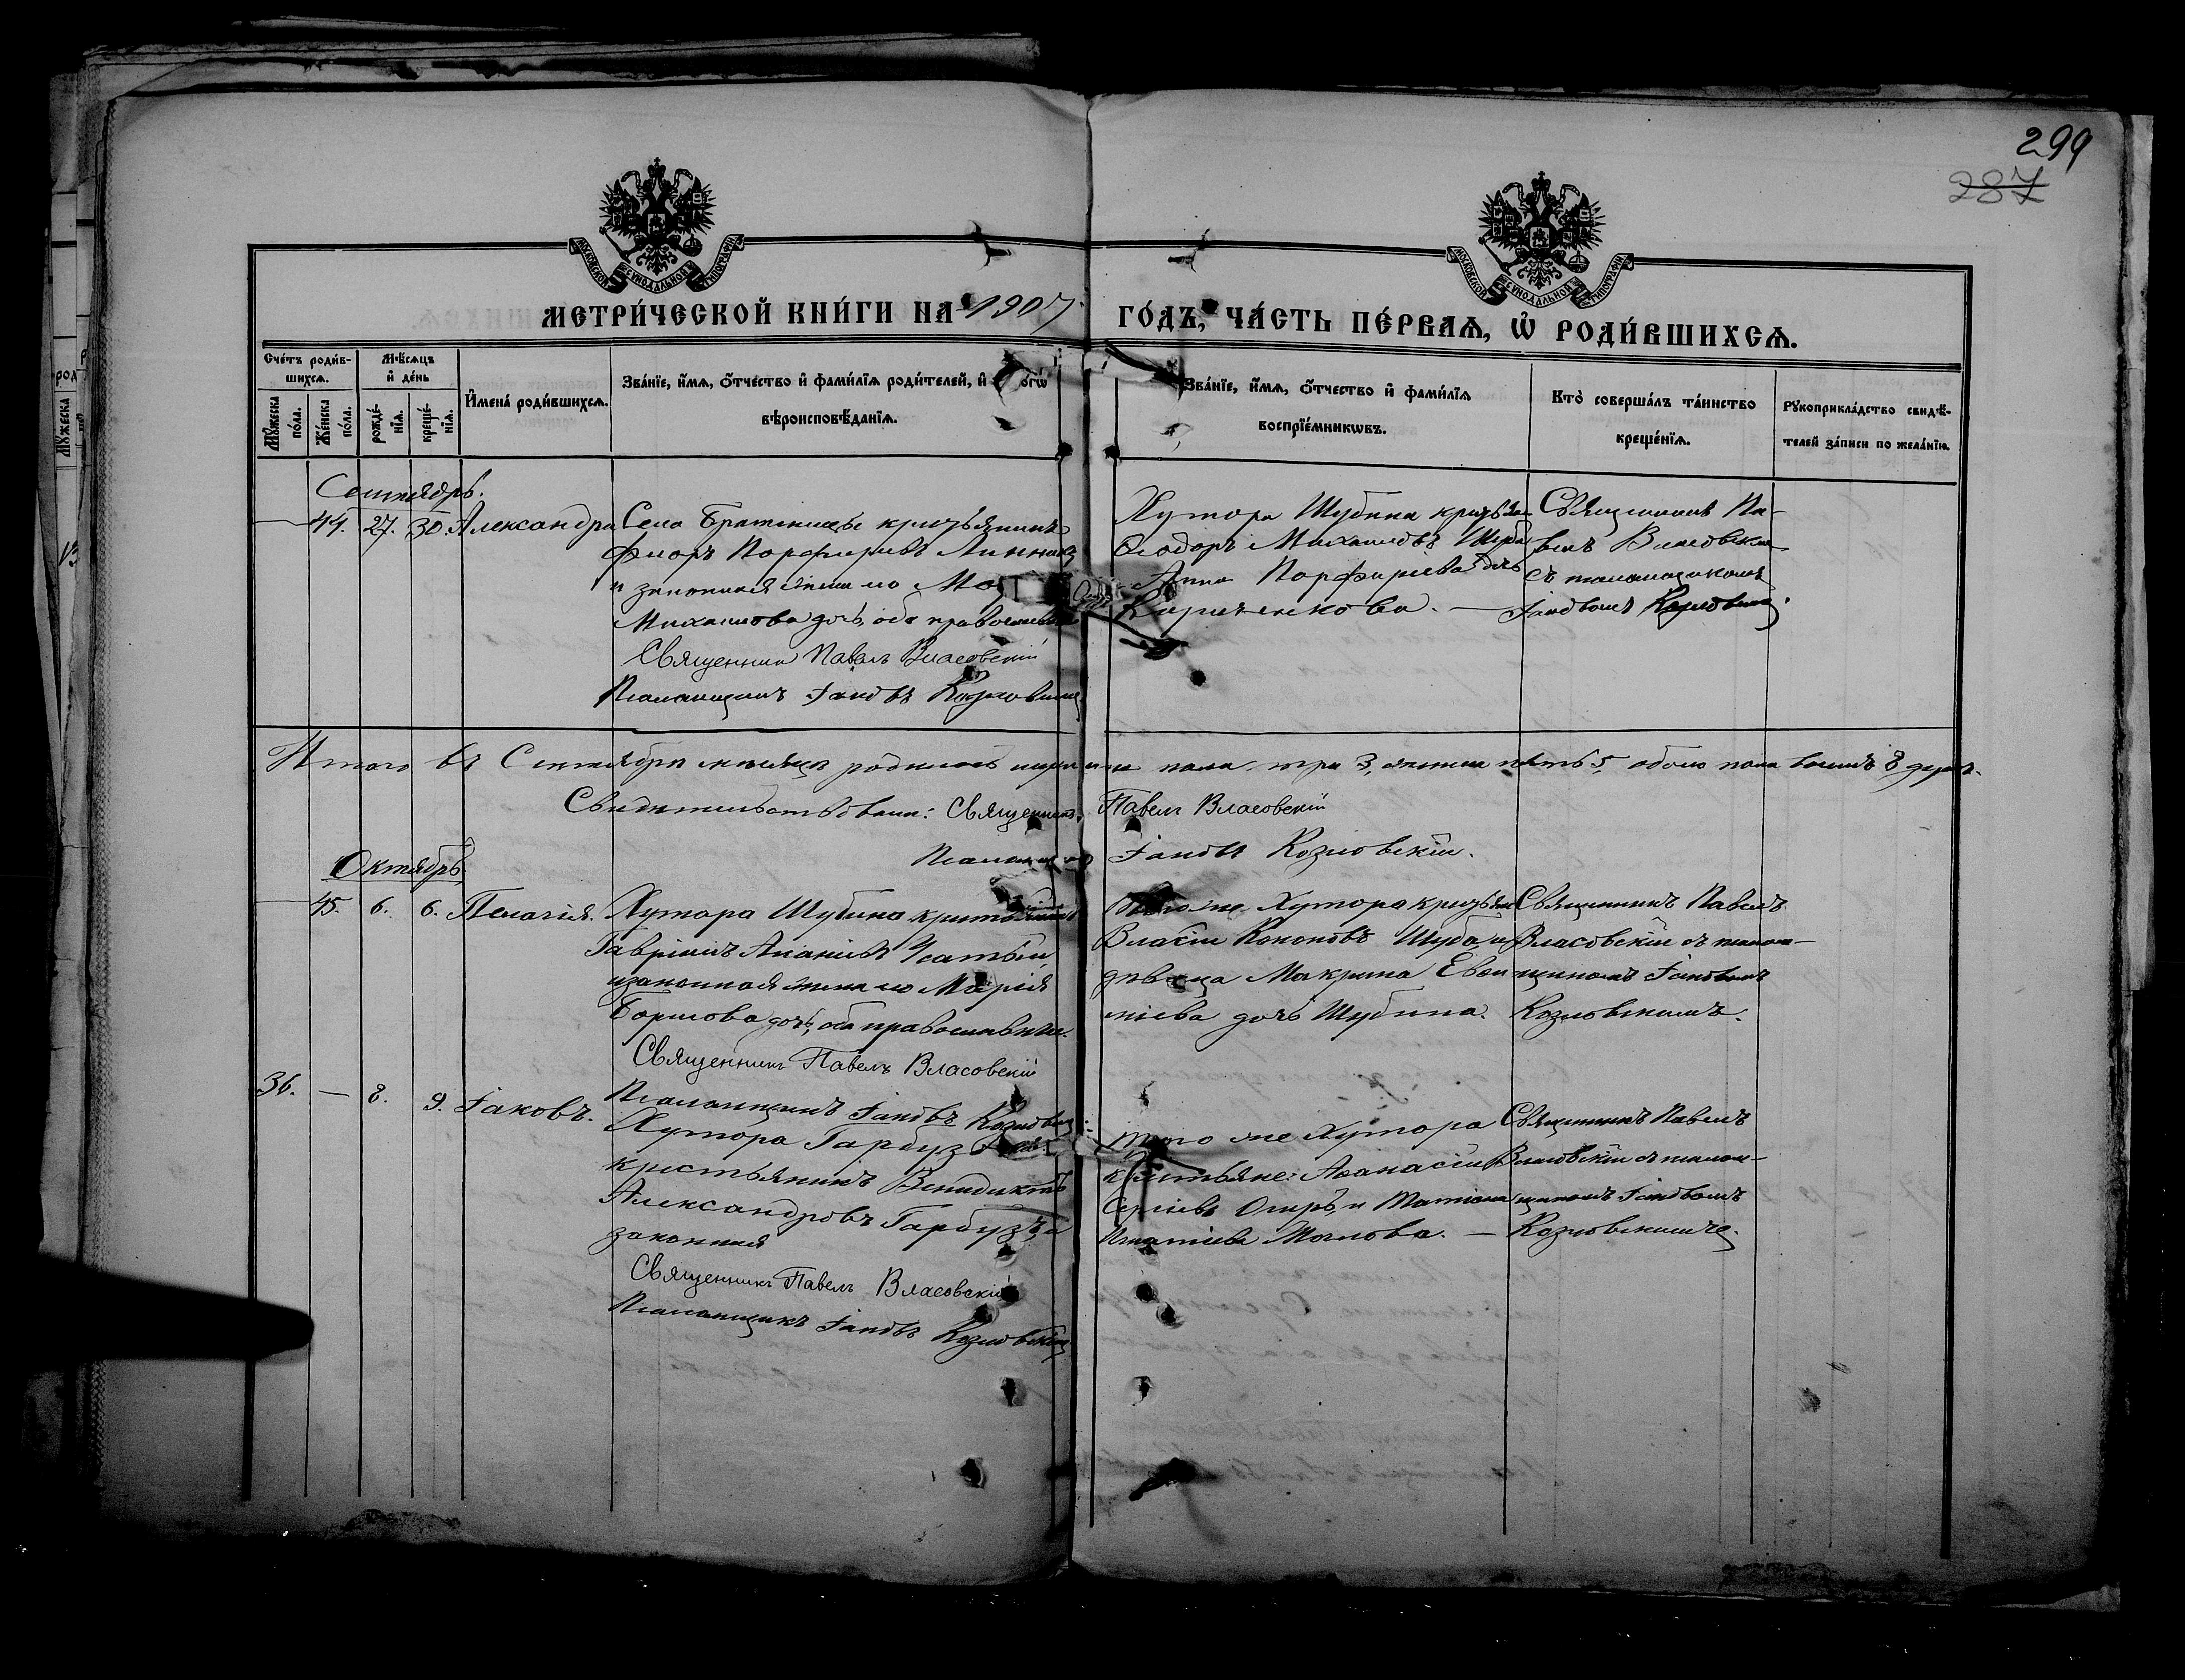 299
287
МОСКОВСКОЙ СУНОДАЛЬНОЙ ТИПОГРАФІИ
МОСКОВСКОЙ СУНОДАЛЬНОЙ ТИПОГРАФІИ
МЕТРИ́ЧЕСКОЙ КНИ́ГИ НА 1907 ГО́ДЪ, ЧА́СТЬ ПЕ́РВАѦ, Ѡ҆ РОДИ́ВШИХСѦ.
Сче́тъ роди́в-
шихсѧ.
Мꙋ́жеска по́ла.
Же́нска по́ла.
Мѣ́сѧцъ
и҆ де́нь
рожде́-
нїѧ.
креще́-
нїѧ.
И҆мена̀ роди́вшихсѧ.
Зва́нїе, и҆́мѧ, ѻ҆́тчество и҆ фами́лїѧ роди́телей, и҆
вѣроисповѣ́данїѧ.
Зва́нїе, и҆́мѧ, ѻ҆́тчество и҆ фами́лїѧ
воспрїе́мникѡвъ.
Кто̀ соверша́лъ та́инство
креще́нїѧ.
Рꙋкоприкла́дство свидѣ́-
телей за́писи по жела́нїю.
Сентябрь.
44. 27. 30. Александра
Села крестьянинъ
Порфирьевъ
и законная жена его
Михаилова дочь, оба православные
Священникъ Павелъ Власовскій
Псаломщикъ Іаковъ Козловскій
Хутора Шубина
Ѳеодоръ Михаиловъ
Анна Порфириева дочь
Священникъ Па-
велъ Власовскій
съ псаломщикомъ
Іаковомъ Козловскимъ.
Итого въ Сентябрѣ мѣсяцѣ родилось мужеска пола три 3, женска пять 5, обоего пола восемь 8 душъ.
Свидѣтельствовали: Священникъ Павелъ Власовскій
Псаломщикъ Іаковъ Козловскій.
Октябрь
45. 6. 6. Пелагія.
Хутора Шубина крестьянинъ
Гавріилъ Ананіевъ
и законная жена его Марія
Борисова дочь, оба православные.
Священникъ Павелъ Власовскій
Псаломщикъ Іаковъ Козловскій
Того же Хутора
Власій Кононовъ Шуба, и
дѣвица Макрина
дочь Шубина.
Священникъ Павелъ
Власовскій съ псалом-
щикомъ Іаковомъ
Козловскимъ.
36. — 8. 9. Іаковъ.
Хутора
крестьянинъ Венедиктъ
Александровъ Гарбузъ, и
законная
Священникъ Павелъ Власовскій
Псаломщикъ Іаковъ Козловскій
Того же Хутора
крестьяне: Аѳанасій
Сергіевъ и Татіана
Игнатіева
Священникъ Павелъ
Власовскій съ псалом-
щикомъ Іаковомъ
Козловскимъ.